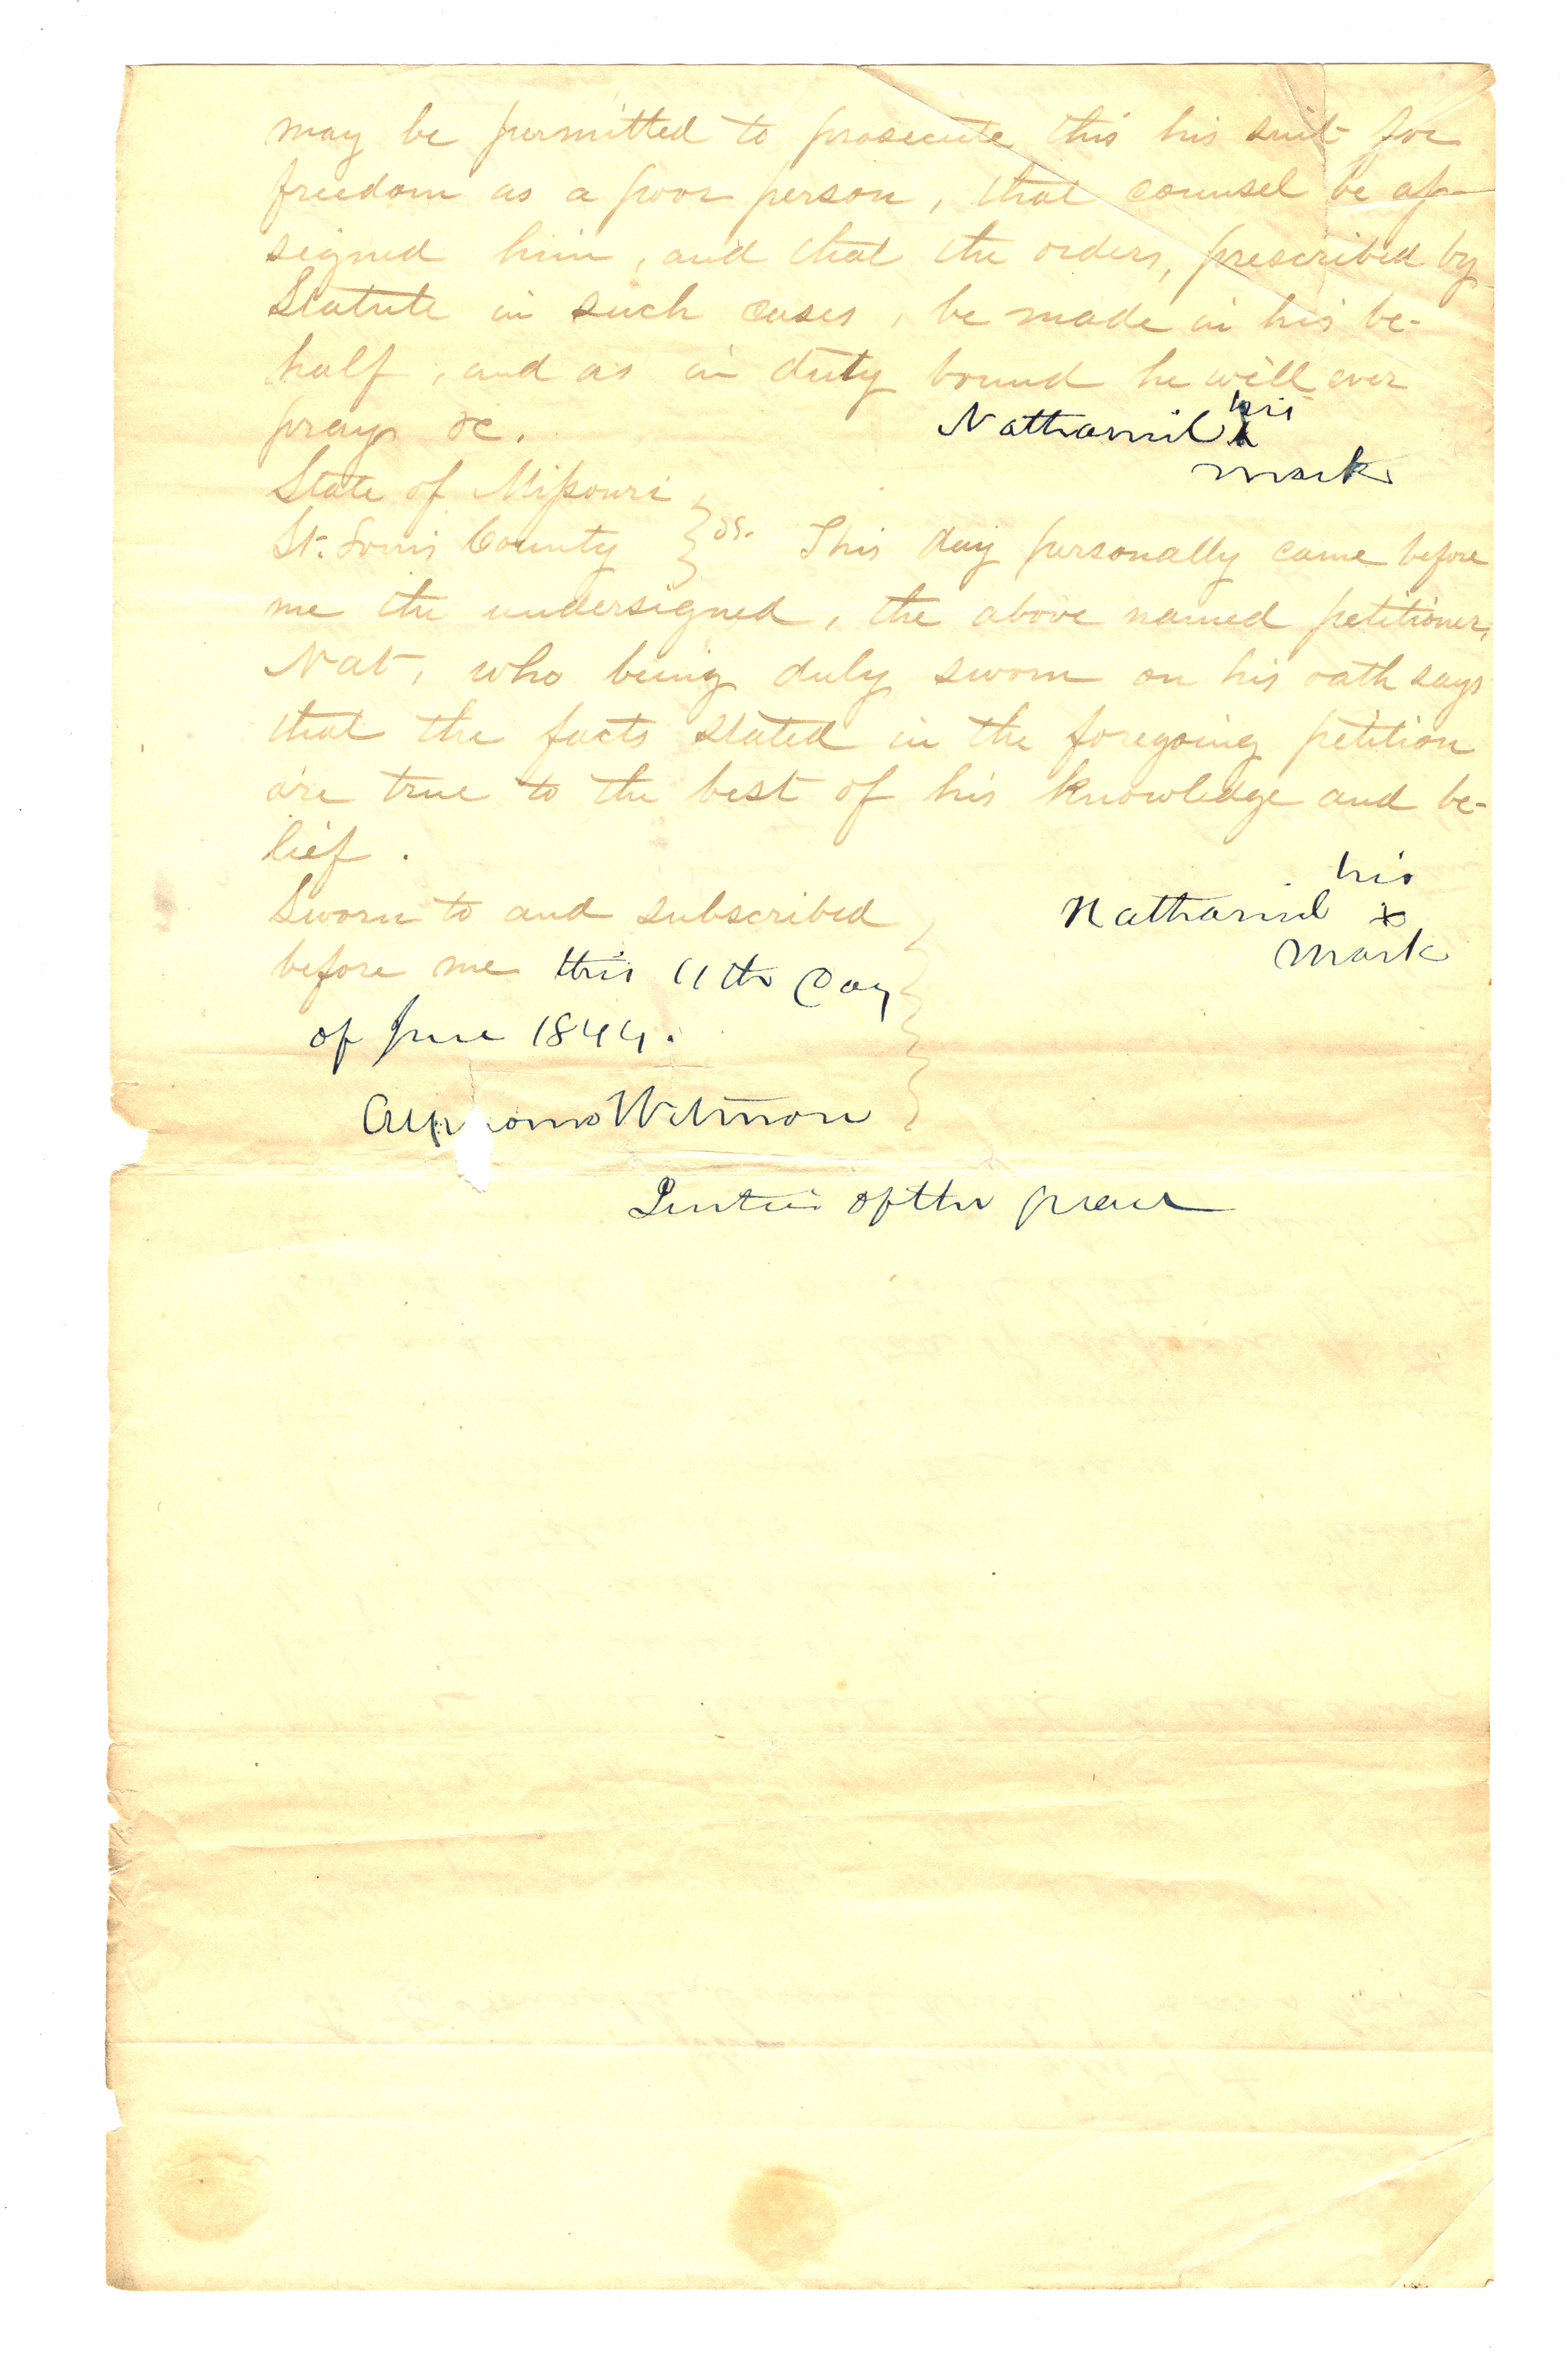 may be permitted to prosecute this his suit for
freedom as a poor person, that counsel be as-
signed him, and that the orders, prescribed by
Statute in such cases, be made in his be-
half, and as in duty bound he will ever
pray &c.
Nathaniel his
x
mark
State of Missouri
St. Louis County } ss. This day personally came before
me the undersigned, the above named petitioner,
Nat, who being duly sworn on his oath says
that the facts stated in the foregoing petition
are true to the best of his knowledge and be-
lief.
his
Sworn to and subscribed } Nathaniel x
before me this 11th Day mark
of June 1844.
Wetmore
Justice of the peace